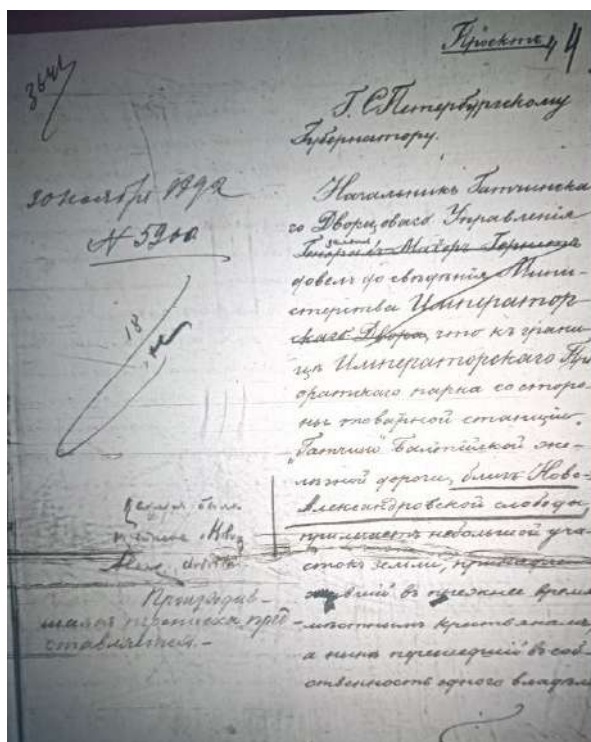 Проектъ 4
3641
Г. СПетербургскому
Губернатору.
30 ноября 1892
N 5900
Начальникъ Гатчинска
го Дворцоваго Управленія
довелъ до свѣдѣнія Мини-
стерства Император
скаго Двора, что къ грани
цѣ Императорскаго Прі
оратскаго парка со сторо
ны товарной станціи
„Гатчина" Балтійской же-
лѣзной дороги, близъ Ново-
Александровской слободы
примыкаетъ небольшой уча
стокъ земли,
въ прежнее время
мѣстнымъ крестьянамъ,
а нынѣ перешедшій въ соб-
ственность одного владѣл
18
Производив-
шаяся переписка пред-
ставляется.-